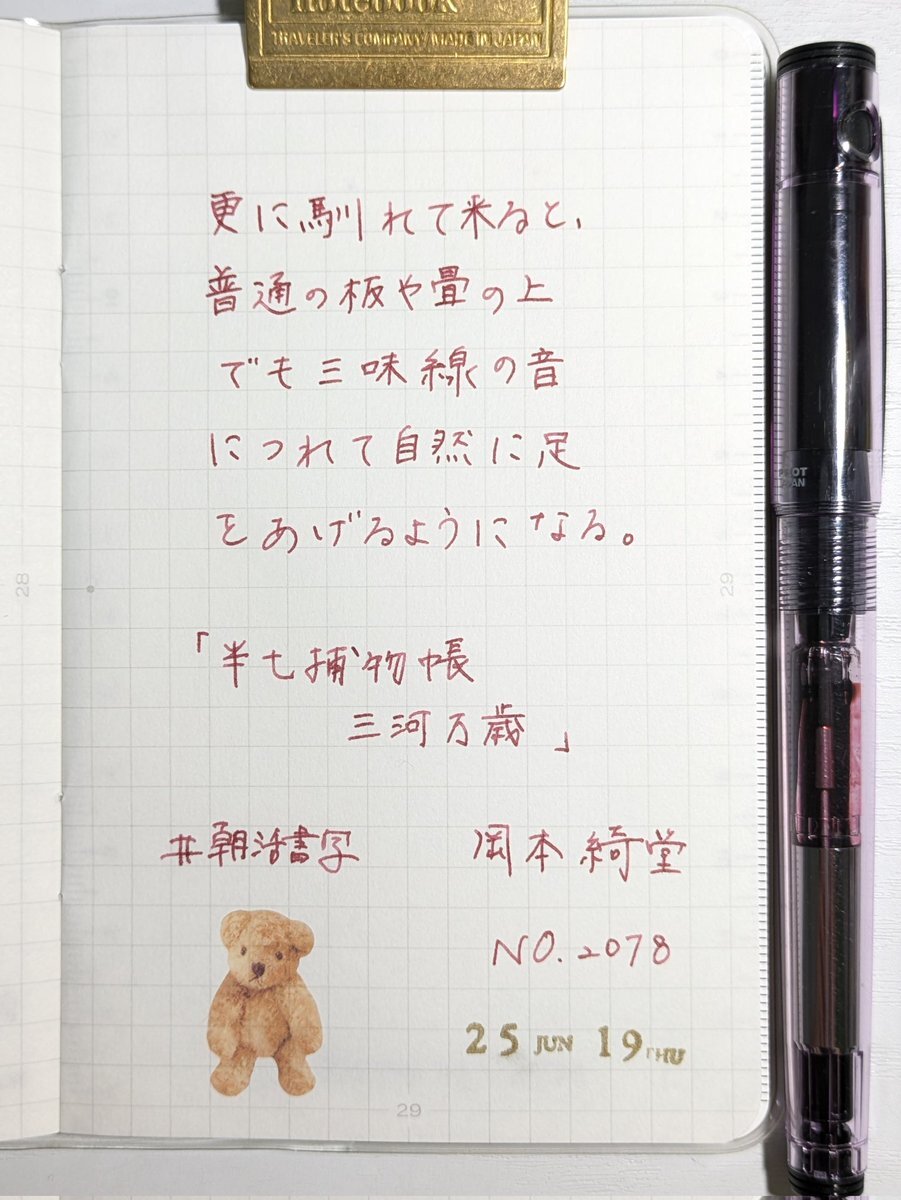 Notebook
TRAVELER'S COMPANY/MADE IN JAPAN
更に馴れて来ると、
普通の板や畳の上
でも三味線の音
につれて自然に足
をあげるようになる。
「半七捕物帳
三河万歳」
#朝活書写
岡本綺堂
NO.2078
25 JUN 19 THU
28
29
29